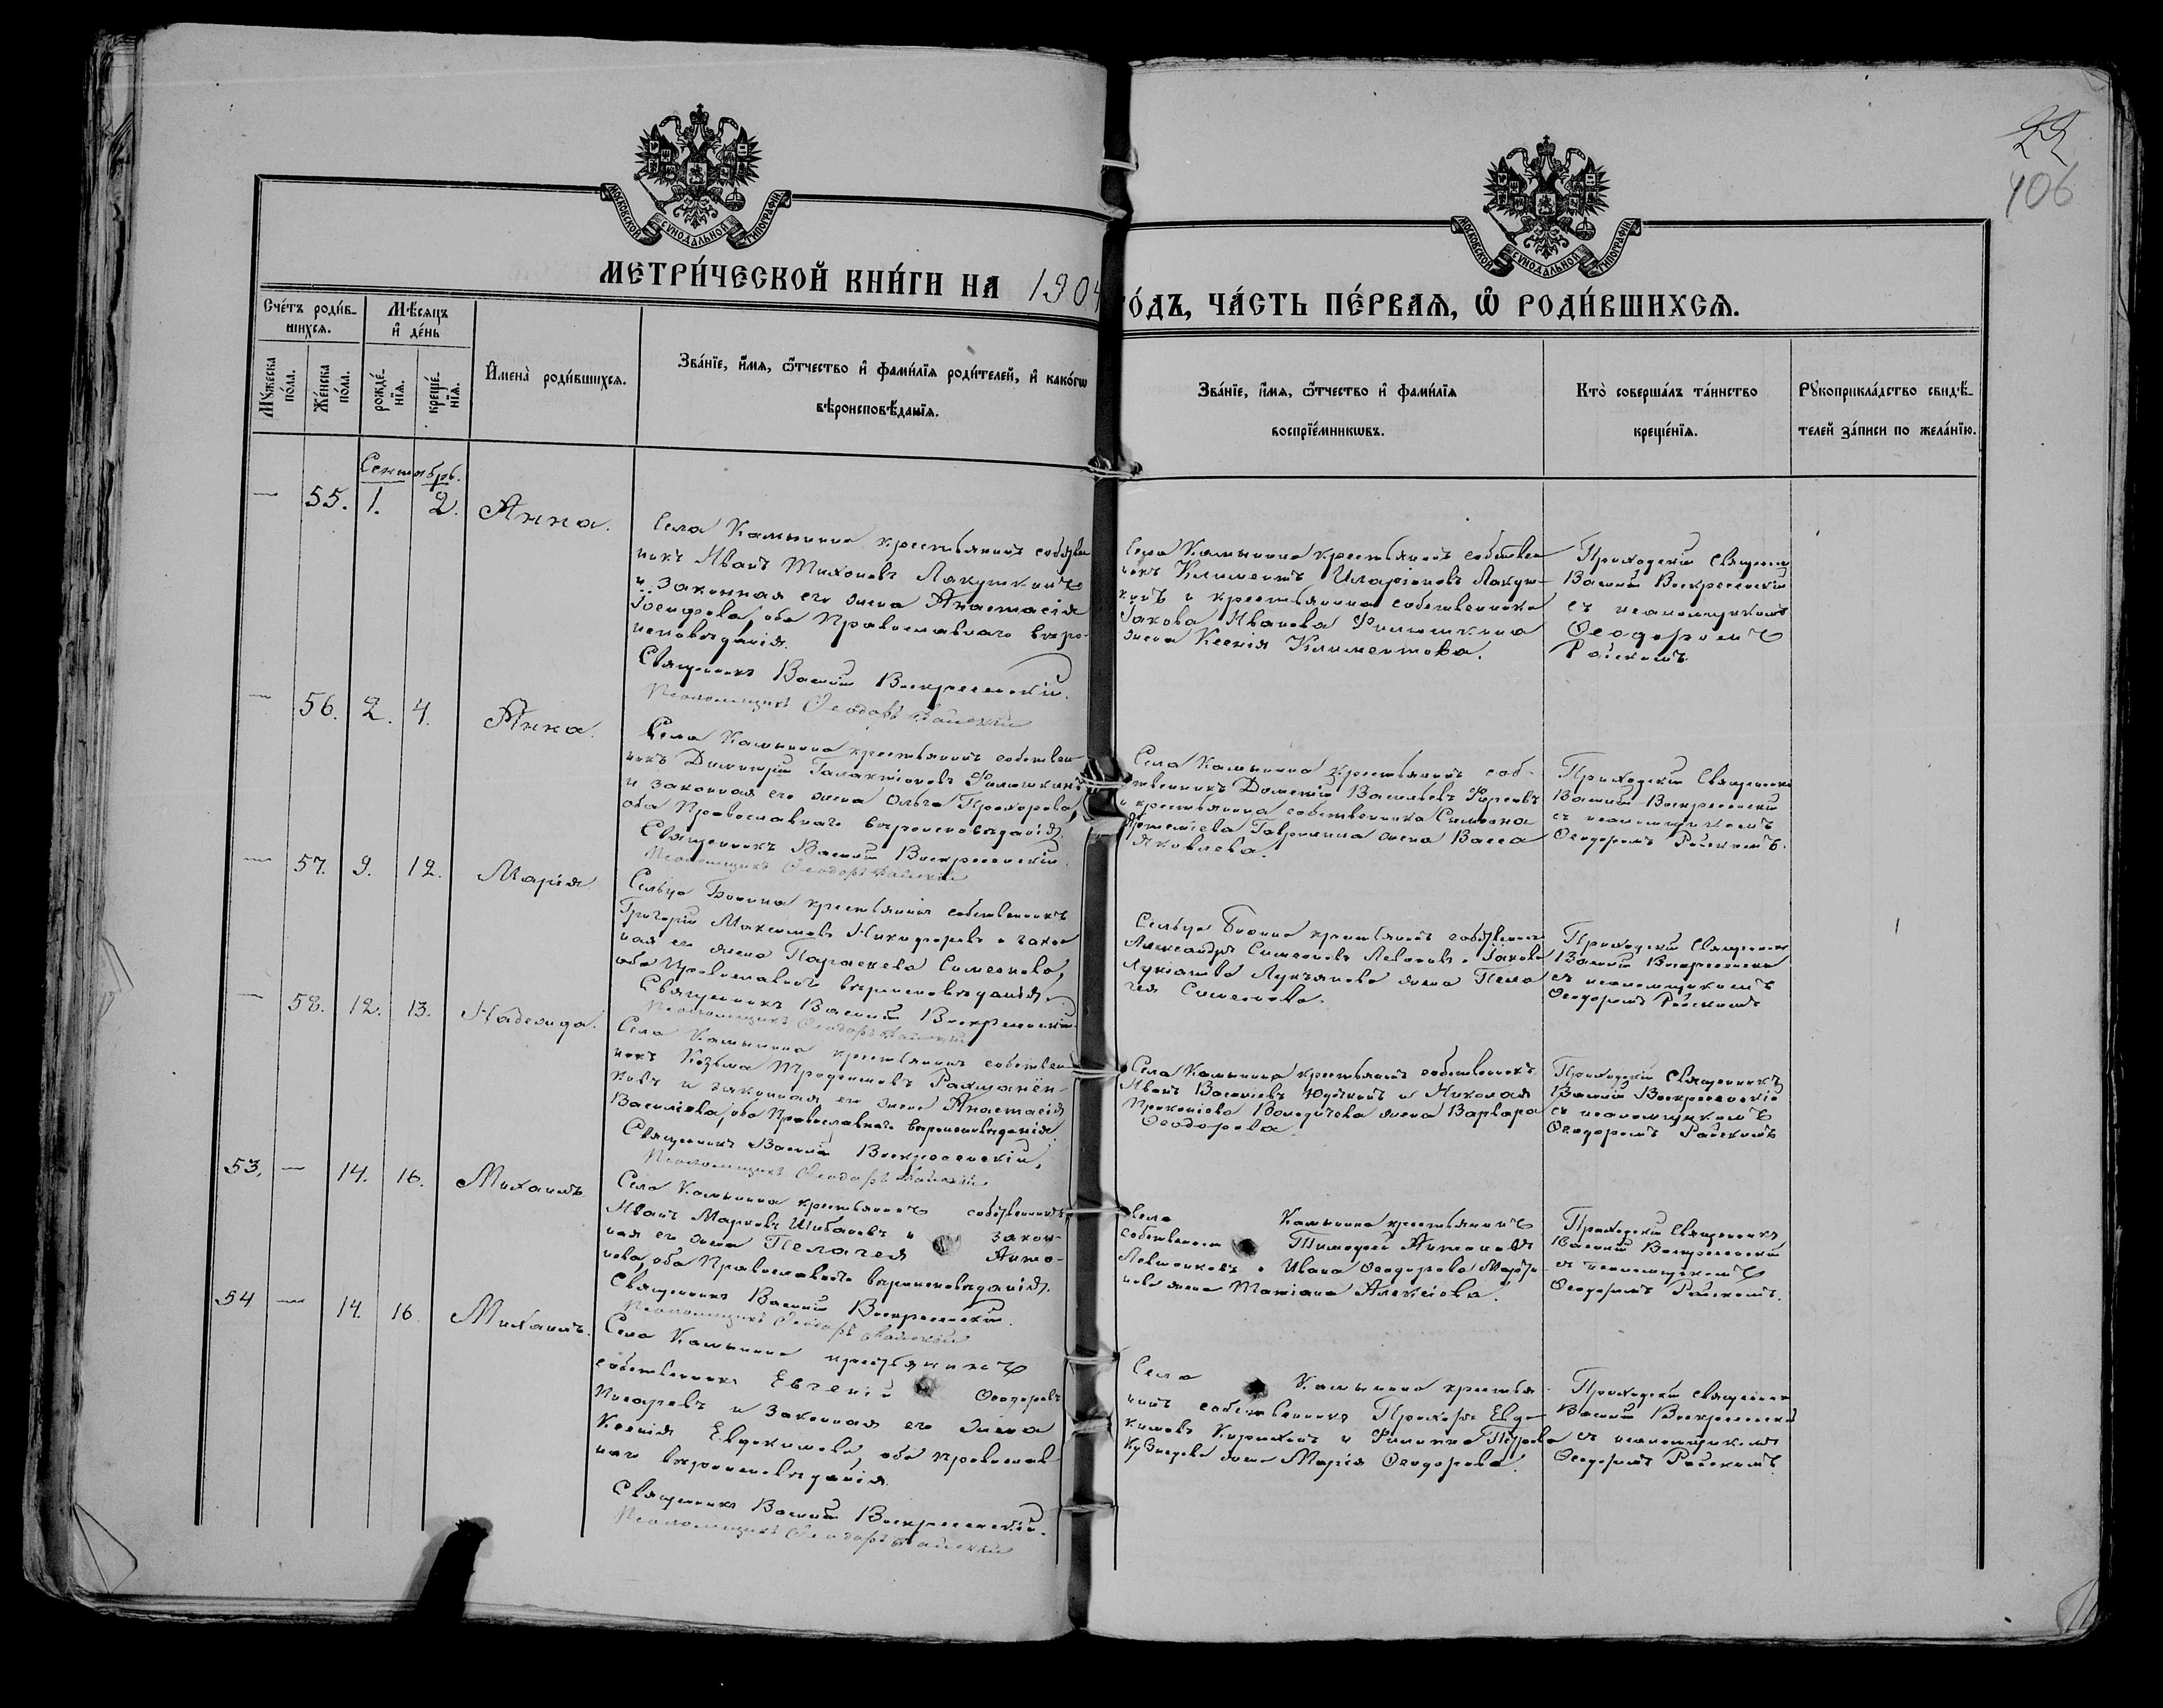 22
106
МОСКОВСКОЙ СѴНОДАЛЬНОЙ ТИПОГРАФІИ
МОСКОВСКОЙ СѴНОДАЛЬНОЙ ТИПОГРАФІИ
МЕТРИ́ЧЕСКОЙ КНИ́ГИ НА 1904
О́ДЪ, ЧА́СТЬ ПЕ́РВАЯ, Ѽ РОДИ́ВШИХСЯ.
Сче́тъ роди́в-
шихся.
Мѣ́сяцъ
и҆ де́нь
Мꙋ́жеска по́ла.
Же́нска по́ла.
рожде́-нїя.
креще́-нїя.
И҆мена̀ роди́вшихся.
Зва́нїе, и҆́мя, ѻ҆́тчество и҆ фами́лїя роди́телей, и҆ како́гѡ
вѣроисповѣ́данїя.
Зва́нїе, и҆́мя, ѻ҆́тчество и҆ фами́лїя
воспрїе́мникѡвъ.
Кто̀ соверша́лъ та́инство
креще́нїя.
Рꙋкоприкла́дство свидѣ́-
телей за́писи по жела́нїю.
Сентябрь.
— 55. 1. 2. Анна.
Села Камынина крестьянинъ собствен
никъ Иванъ Тихоновъ Лакушкинъ
и законная его жена Анастасія
Іосифова, оба Православнаго вѣро-
исповѣданія.
Священникъ Василій Воскресенскій.
Псаломщикъ Ѳеодоръ Райскій
Села Камынина крестьянинъ собствен
никъ Климентъ Иларіоновъ Лакуш-
кинъ и крестьянина собственника
Іакова Иванова Филюшкина
жена Ксенія Климентова.
Приходскій Священник
Василій Воскресенскій
съ псаломщикомъ
Ѳеодоромъ
Райскимъ
— 56. 2. 4. Анна.
Села Камынина крестьянинъ собствен
никъ Димитрій Галактіоновъ Филюшкинъ
и законная его жена Ольга Прохорова,
оба Православнаго вѣроисповѣданія.
Священникъ Василій Воскресенскій.
Псаломщикъ Ѳеодоръ Райскій
Села Камынина крестьянинъ соб-
ственникъ Василіевъ
и крестьянина собственника Симеона
Гаврилина жена Васса
Яковлева.
Приходскій Священникъ
Василій Воскресенскій
съ псаломщикомъ
Ѳеодоромъ Райскимъ.
— 57. 9. 12. Марія
Сельца крестьянинъ собственникъ
Григорій Максимовъ Никифоровъ и закон
ная его жена Параскева Симеонова,
оба Православнаго вѣроисповѣданія.
Священникъ Василій Воскресенскій.
Псаломщикъ Ѳеодоръ Райскій
Сельца крестьянинъ собственник
Александръ Симеоновъ Леоновъ и Іакова
Лукьянова жена Пела
гея Симеонова.
Приходскій Священник
Василій Воскресенскій
съ псаломщикомъ
Ѳеодоромъ Райскимъ
— 58. 12. 13. Надежда.
Села Камынина крестьянинъ собствен
никъ Козьма
ковъ и законная его жена Анастасія
Василіева, оба Православнаго вѣроисповѣданія.
Священникъ Василій Воскресенскій.
Псаломщикъ Ѳеодоръ Райскій
Села Камынина крестьянинъ собственникъ
Иванъ Василіевъ и Николая
Прокопіева жена Варвара
Ѳеодорова.
Приходскій Священникъ
Василій Воскресенскій
съ псаломщикомъ
Ѳеодоромъ Райскимъ
53. — 14. 16. Михаилъ
Села Камынина крестьянинъ собственникъ
Иванъ Марковъ Шибановъ и закон-
ная его жена Пелагея Анто-
нова, оба Православнаго вѣроисповѣданія.
Священникъ Василій Воскресенскій.
Псаломщикъ Ѳеодоръ Райскій
Села Камынина крестьянинъ
собственник Тимоѳей Антоновъ
и Ивана Ѳеодорова
жена Татіана Алексіева.
Приходскій Священникъ
Василій Воскресенскій
съ псаломщикомъ
Ѳеодоромъ Райскимъ.
54 — 14. 16. Михаилъ.
Села Камынина крестьянинъ
собственникъ Евгеній Ѳеодоровъ
Писаревъ и законная его жена
Ксенія Евдокимова, оба Православ
наго вѣроисповѣданія.
Священникъ Василій Воскресенскій.
Псаломщикъ Ѳеодоръ Райскій
Села Камынина крестья
нинъ собственникъ Прохоръ Евдо
кимовъ и Филиппа Петрова
Кузнецова жена Марія Ѳеодорова.
Приходскій Священник
Василій Воскресенскій
съ псаломщикомъ
Ѳеодоромъ Райскимъ.